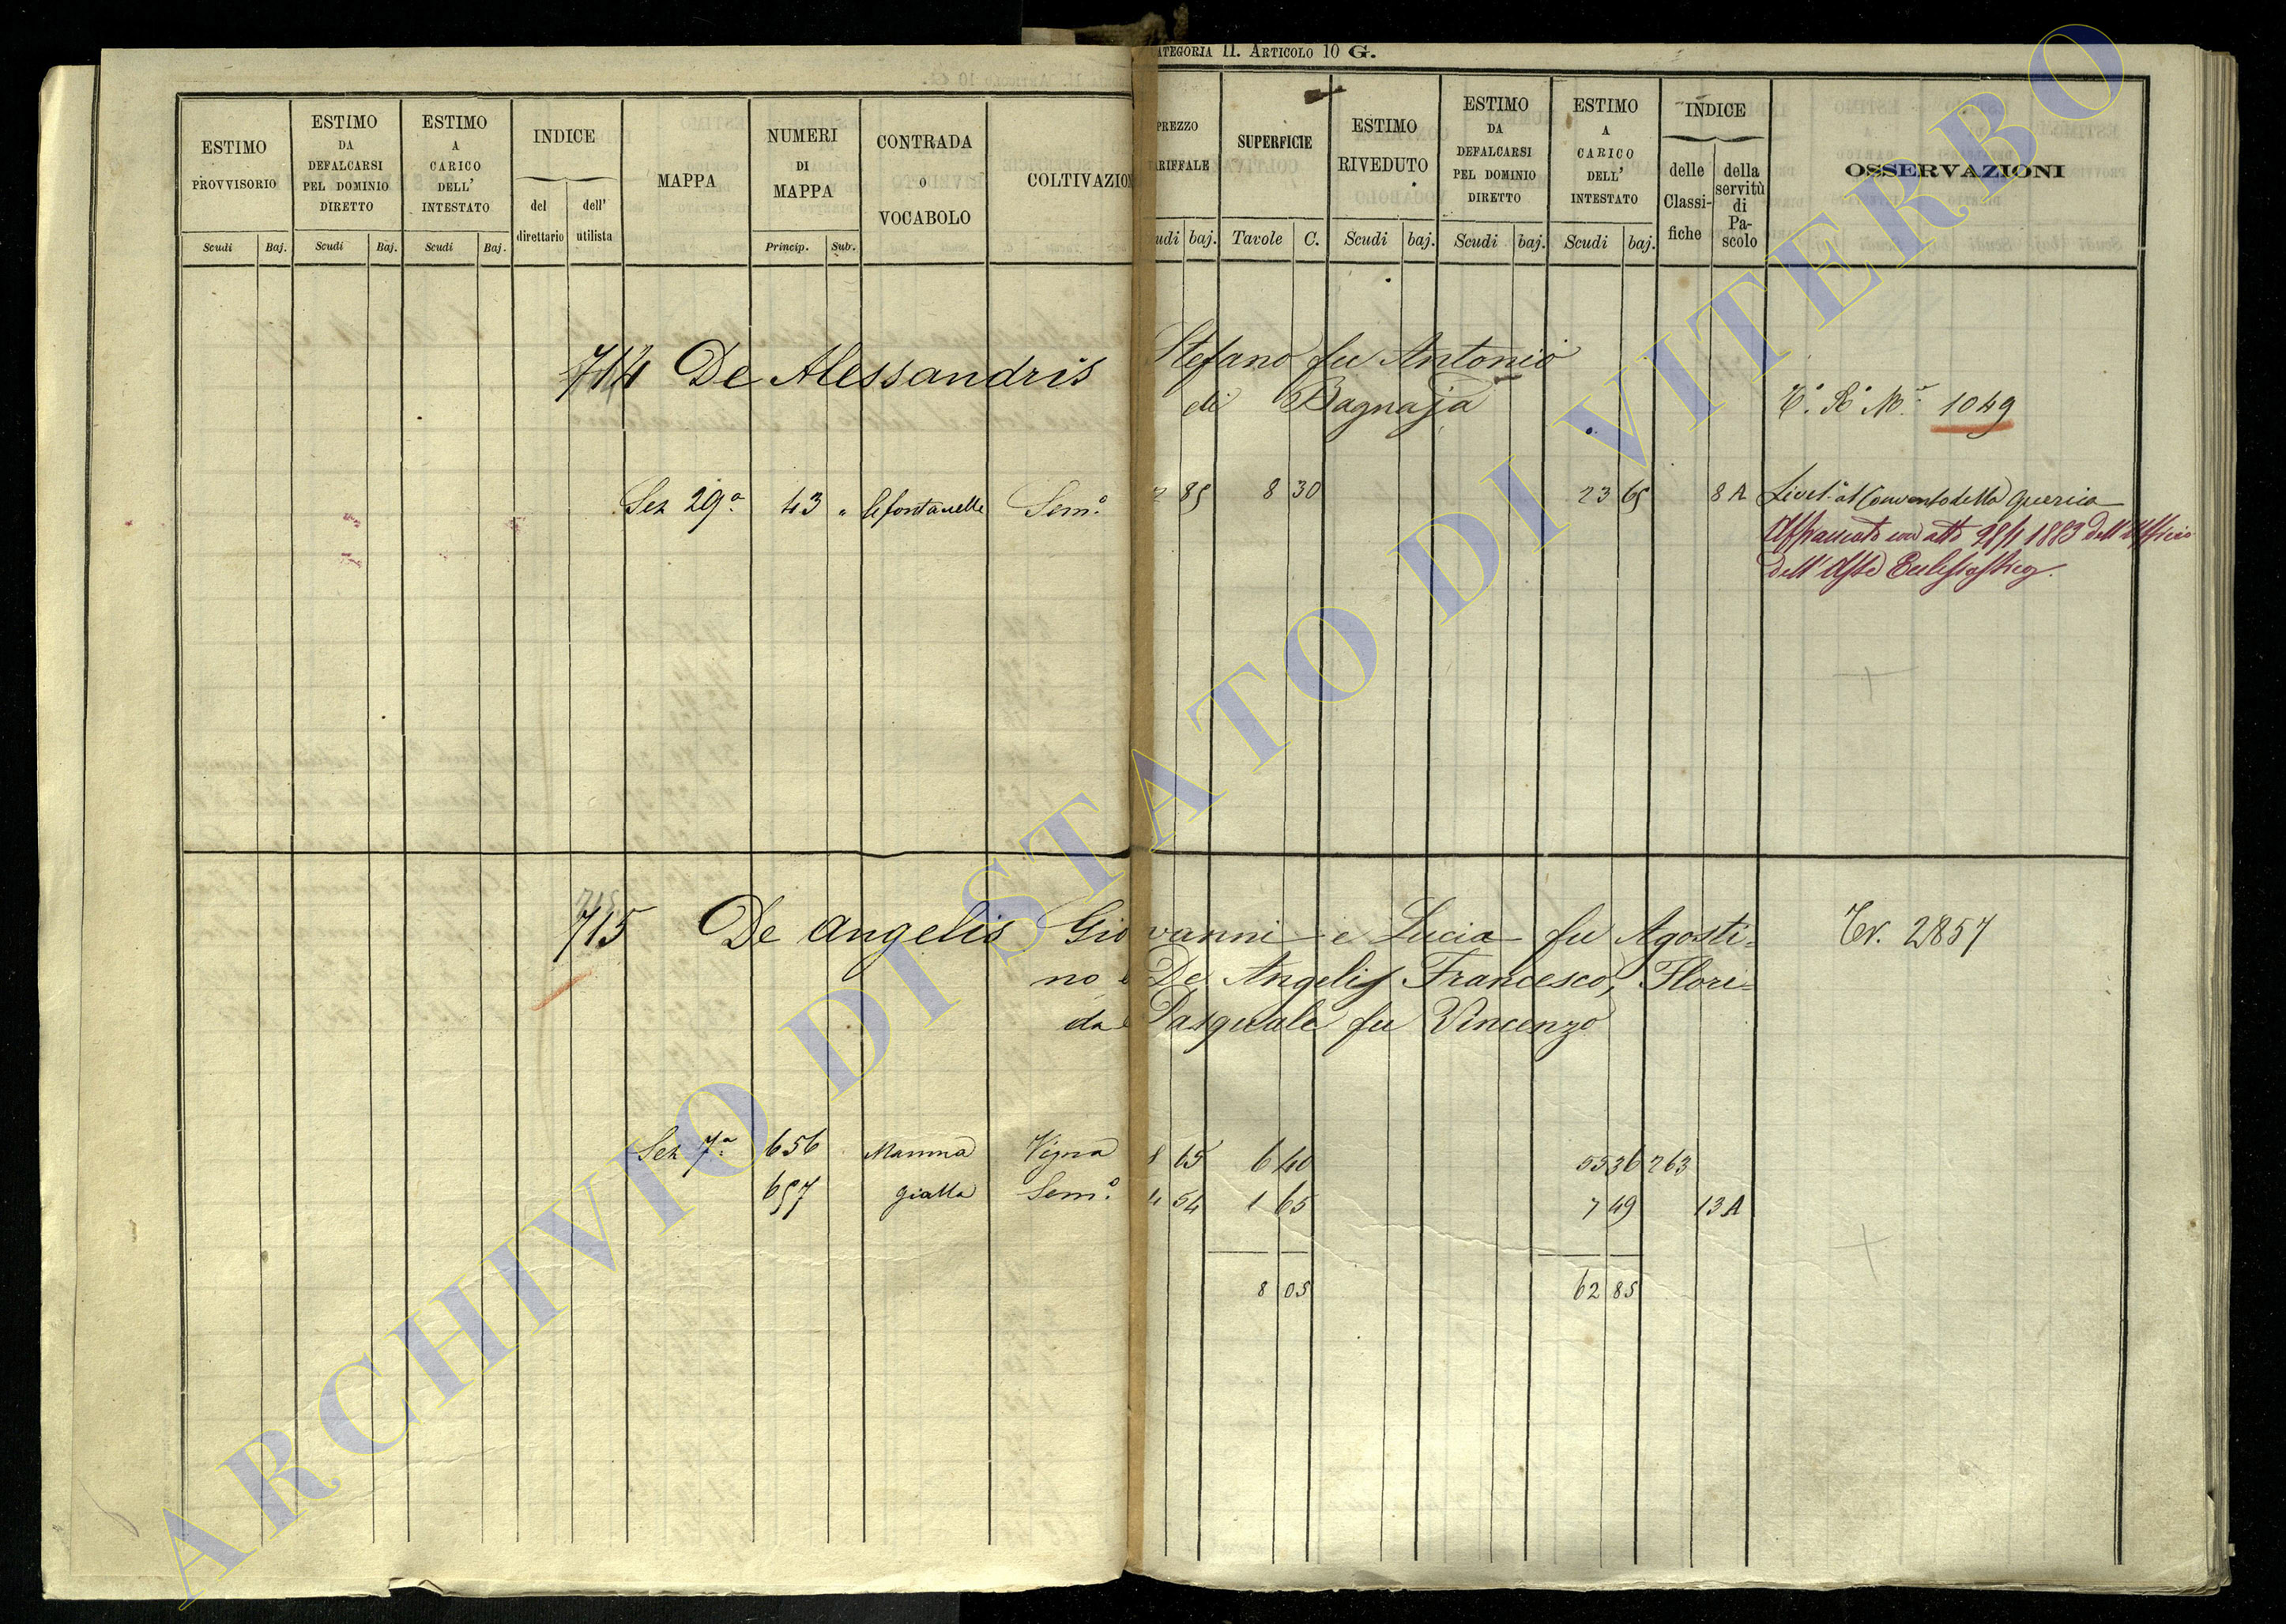 ATEGORIA II. ARTICOLO 10 G.
ESTIMO PROVVISORIO
ESTIMO DA DEFALCARSI PEL DOMINIO DIRETTO
ESTIMO A CARICO DELL' INTESTATO
INDICE
del direttario
dell' utilista
MAPPA
NUMERI DI MAPPA
CONTRADA O VOCABOLO
COLTIVAZION
PREZZO
ARIFFALE
SUPERFICIE
ESTIMO RIVEDUTO
ESTIMO DA DEFALCARSI PEL DOMINIO DIRETTO
ESTIMO A CARICO DELL' INTESTATO
INDICE
delle Classi-fiche
della servitù di Pa-scolo
OSSERVAZIONI
Scudi Baj. Scudi Baj. Scudi Baj. Princip. Sub. udi baj. Tavole C. Scudi baj. Scudi baj. Scudi baj.
714 De Alessandris Stefano fu Antonio
di Bagnaja
1049
Sez 29.a 43 " le fontanelle Sem.o 2 85 8 30 23 65 8 A Livel.o al Convento della Quercia
Affrancato con atto 28/1 1883 dell'Officio
dell'Asse Ecclesiastico.
715
715 De Angelis Giovanni e Lucia fu Agosti= Tr. 2857
no e De Angelis Francesco, Flori=
da e Pasquale fu Vincenzo
Sez 7.a 656 Mamma Vigna 8 65 6 40 55 36 263
657 gialla Sem.o 4 54 1 65 7 49 13 A
8 05 62 85
ARCHIVIO DI STATO DI VITERBO